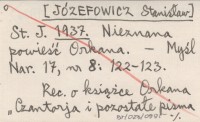 [JÓZEFOWICZ Stanisław]
St. J. 1937. Nieznana
powieść Orkana. — Myśl
Nar. 17, nr 8: 122-123.
Rec. o książce Orkana
„Czantorja i pozostałe pisma